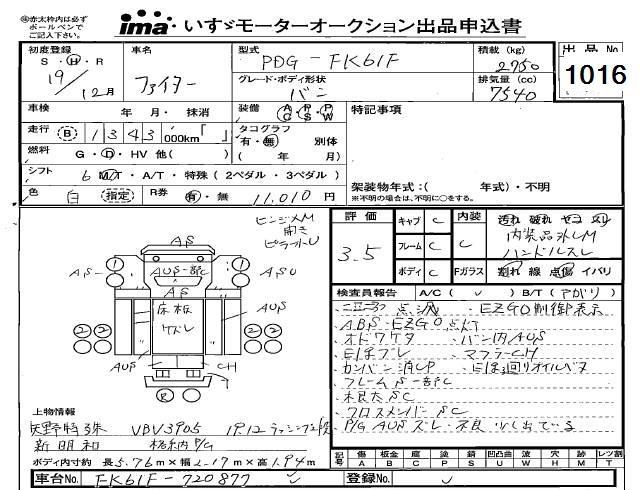 ㊟赤太枠内は必ず
ボールペンで
ご記入下さい。
ima いすゞモーターオークション出品申込書
初度登録 車名 型式 PDG-FK61F 積載(kg) 2750 出品No
S・H・R 19/12月 ファイター グレード・ボディ形状 バン 排気量(cc) 7540 1016
車検 年 月・ 抹消 装備 AC PS PW 特記事項
走行 B 1343 000km「 」 タコグラフ 有・無 別体
燃料 G・D・HV 他( ) ( 年 月)
シフト 6 M/T・A/T・特殊(2ペダル・3ペダル) 架装物年式:( 年式)・不明
色 白 指定 R券 有・無 11,010円 ※不明の場合は、不明に○をする。
ヒンジMM
開き
ピラーU
評価 3.5 キャブ C 内装 汚れ 破れ ヤコゲ スレ
フレーム C 内装品外しM
ハンドルスレ
ボディ C Fガラス 割れ 線 点傷 イバリ
AS
AS AUS-部C ASU
AS
床板
ケズレ
AUS
AUS CH
R
検査員報告 A/C( ) B/T(アガリ)
点滅 EZGO制御表示
ABS・EZGO点灯
オドワケタ バン内AUS
E1まブレ マフラーCH
カンバン消しP E1まわ廻りオイルベタ
フレームS一部C
根太SC
クロスメンバーSC
P/G AUSズレ・不良・少し出ている
上物情報
矢野特殊 VBV3905 19.12 ラッシング2段
新明和 格納P/G
ボディ内寸約 長5.76m×幅2.17m×高1.94m
記号 傷A 凹B 腐C 塗P 錆S 曲凹凸U 波W 穴H 跡M レツ割T
車台No. FK61F-720877 登録No.